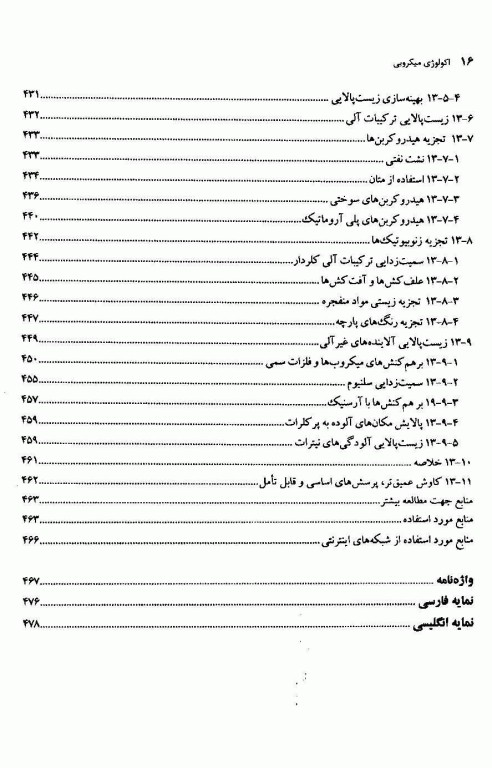 ۱۶ اکولوژی میکروبی
۱۳-۵-۴ بهینه‌سازی زیست‌پالایی ........ ۴۳۱
۱۳-۶ زیست‌پالایی ترکیبات آلی ........ ۴۳۲
۱۳-۷ تجزیه هیدروکربن‌ها ........ ۴۳۳
۱۳-۷-۱ نشت نفتی ........ ۴۳۳
۱۳-۷-۲ استفاده از متان ........ ۴۳۴
۱۳-۷-۳ هیدروکربن‌های سوختی ........ ۴۳۶
۱۳-۷-۴ هیدروکربن‌های پلی آروماتیک ........ ۴۴۰
۱۳-۸ تجزیه زنوبیوتیک‌ها ........ ۴۴۲
۱۳-۸-۱ سمیت‌زدایی ترکیبات آلی کلردار ........ ۴۴۴
۱۳-۸-۲ علف‌کش‌ها و آفت‌کش‌ها ........ ۴۴۵
۱۳-۸-۳ تجزیه زیستی مواد منفجره ........ ۴۴۶
۱۳-۸-۴ تجزیه رنگ‌های پارچه ........ ۴۴۷
۱۳-۹ زیست‌پالایی آلاینده‌های غیرآلی ........ ۴۴۹
۱۳-۹-۱ برهم‌کنش‌های میکروب‌ها و فلزات سمی ........ ۴۵۰
۱۳-۹-۲ سمیت‌زدایی سلنیوم ........ ۴۵۵
۱۹-۹-۳ بر هم‌کنش‌ها با آرسنیک ........ ۴۵۷
۱۳-۹-۴ پالایش مکان‌های آلوده به پرکلرات ........ ۴۵۹
۱۳-۹-۵ زیست‌پالایی آلودگی‌های نیترات ........ ۴۵۹
۱۳-۱۰ خلاصه ........ ۴۶۱
۱۳-۱۱ کاوش عمیق‌تر، پرسش‌های اساسی و قابل تأمل ........ ۴۶۲
منابع جهت مطالعه بیشتر ........ ۴۶۳
منابع مورد استفاده ........ ۴۶۳
منابع مورد استفاده از شبکه‌های اینترنتی ........ ۴۶۶
واژه‌نامه ........ ۴۶۷
نمایه فارسی ........ ۴۷۶
نمایه انگلیسی ........ ۴۷۸